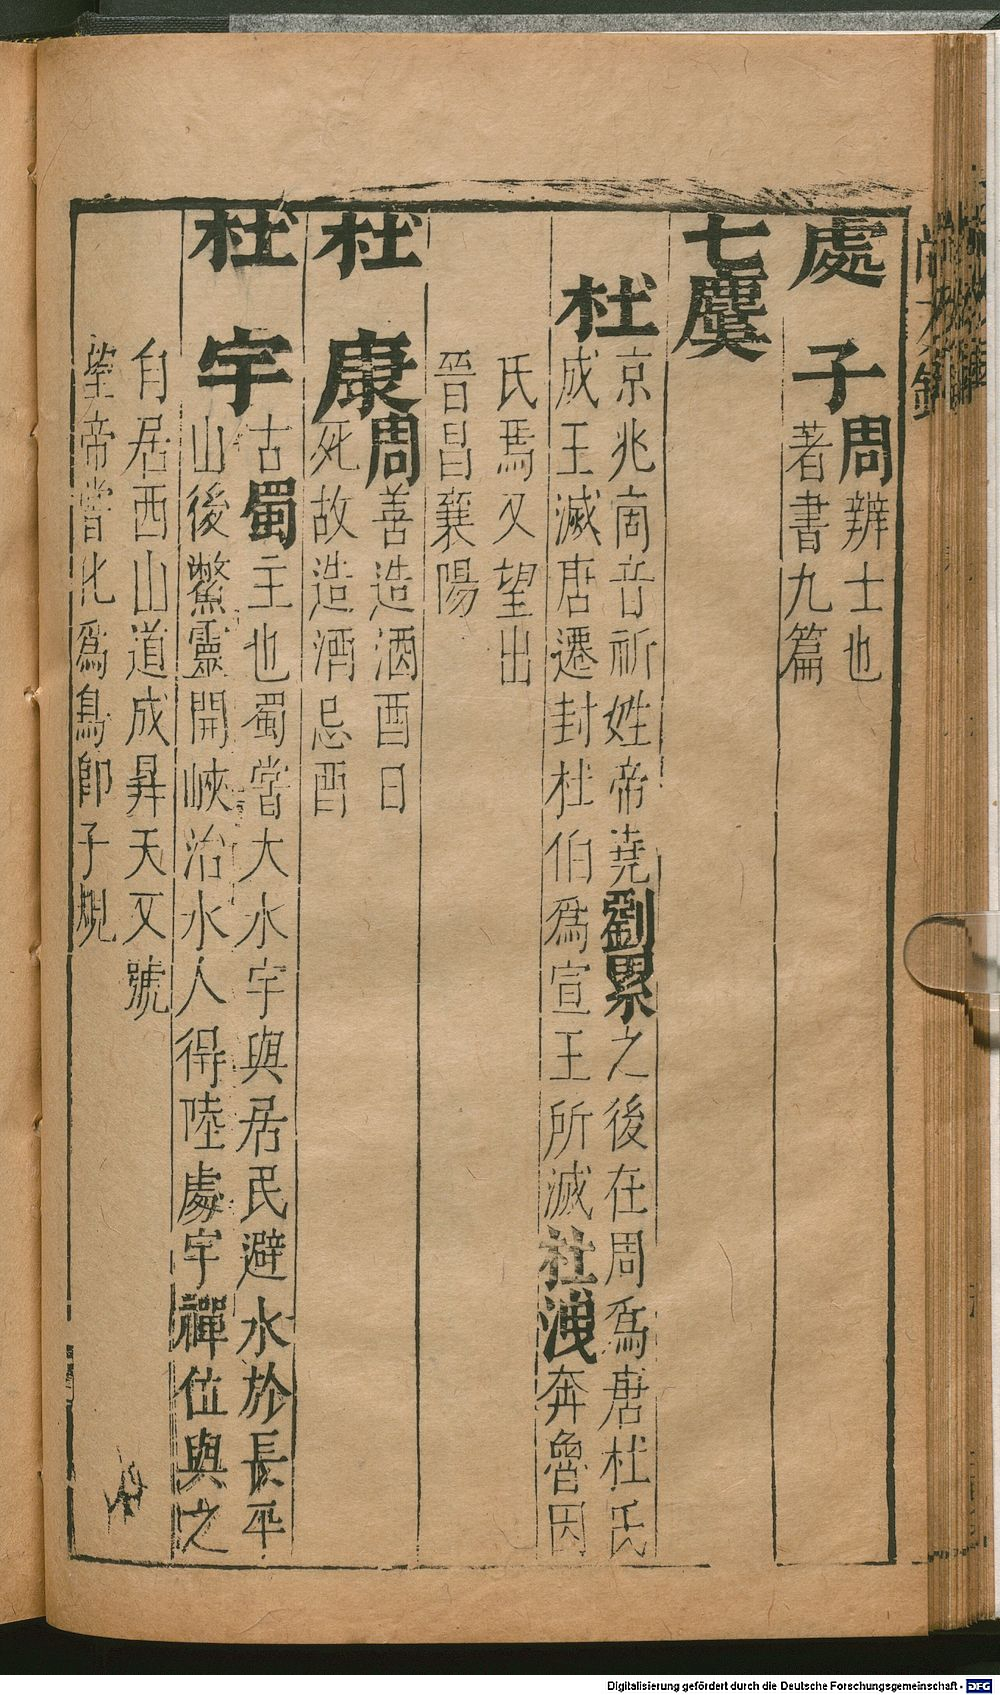 處子周辨士也
著書九篇
七麌
杜京兆啇音祈姓帝堯劉累之後在周爲唐杜氏
成王滅唐遷封杜伯爲宣王所滅杜洩奔魯因
氏焉又望出
晉昌襄陽
杜康周善造酒酉日
死故造酒忌酉
杜宇古蜀主也蜀嘗大水宇與居民避水於長平
山後鱉靈開峽治水人得陸處宇禪位與之
自居西山道成昇天又號
望帝嘗化爲鳥卽子規
Digitalisierung gefördert durch die Deutsche Forschungsgemeinschaft - DFG